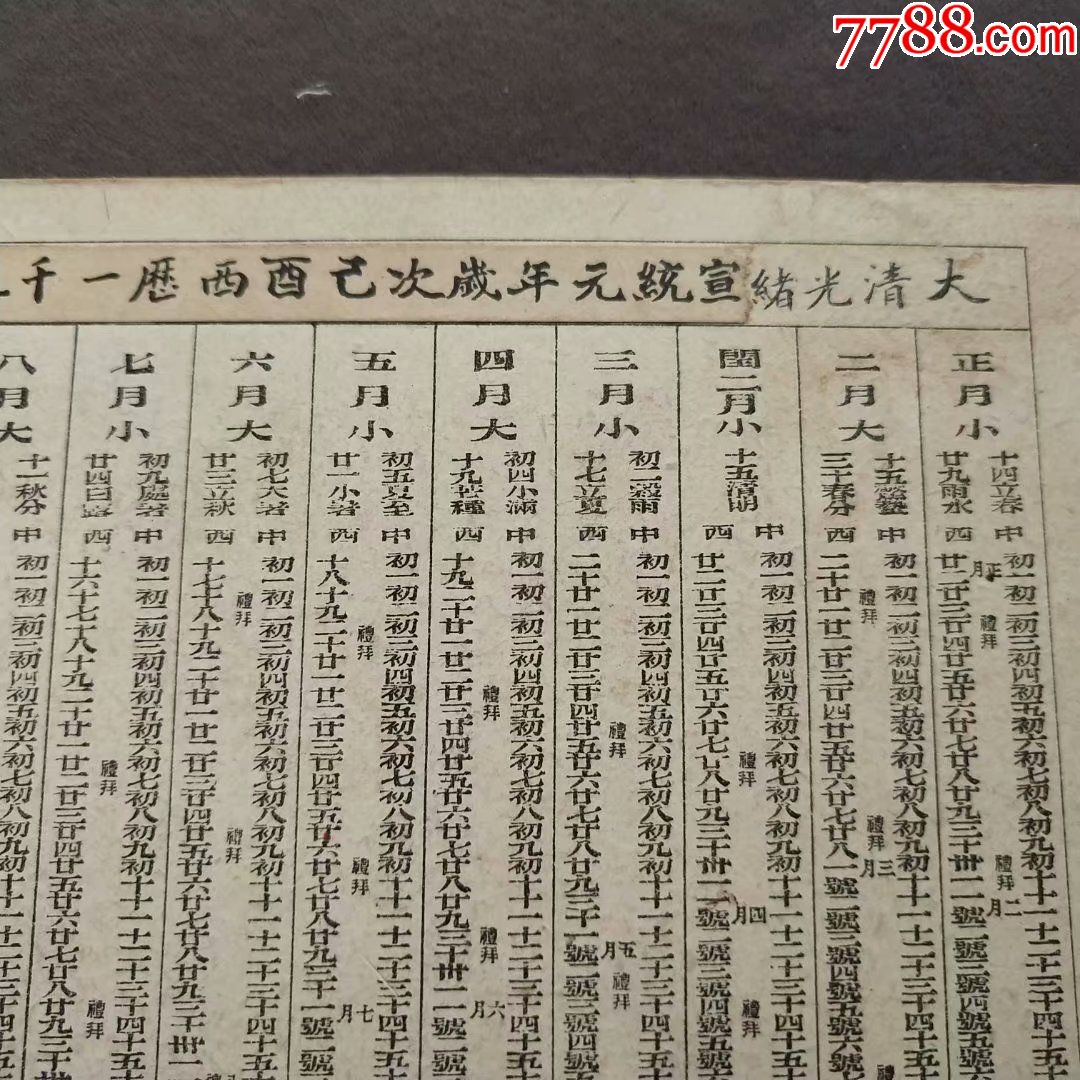 7788.com
大清光緒宣統元年歲次己酉西歷一千
正月小
十四立春
廿九雨水
中
西
正月
初一初二初三初四初五初六初七初八初九初十十一十二十三十四十五
廿二廿三廿四廿五廿六廿七廿八廿九三十卅一一號二號三號四號五號
禮拜
禮拜
二月
二月大
十五驚蟄
三十春分
中
西
初一初二初三初四初五初六初七初八初九初十十一十二十三十四十五
二十廿一廿二廿三廿四廿五廿六廿七廿八一號二號三號四號五號六號
禮拜
禮拜
三月
禮拜
閏二月小
十五清明
中
西
初一初二初三初四初五初六初七初八初九初十十一十二十三十四十五
廿二廿三廿四廿五廿六廿七廿八廿九三十卅一一號二號三號四號五號
禮拜
四月
禮拜
三月小
初二穀雨
十七立夏
中
西
初一初二初三初四初五初六初七初八初九初十十一十二十三十四十五
二十廿一廿二廿三廿四廿五廿六廿七廿八廿九三十一號二號三號四
禮拜
五月
禮拜
四月大
初四小滿
十九芒種
中
西
初一初二初三初四初五初六初七初八初九初十十一十二十三十四十五
十九二十廿一廿二廿三廿四廿五廿六廿七廿八廿九三十卅一一號二號三
禮拜
禮拜
六月
五月小
初五夏至
廿一小暑
中
西
初一初二初三初四初五初六初七初八初九初十十一十二十三十四十五
十八十九二十廿一廿二廿三廿四廿五廿六廿七廿八廿九三十一號二號
禮拜
禮拜
七月
六月大
初七大暑
廿三立秋
中
西
初一初二初三初四初五初六初七初八初九初十十一十二十三十四十五
十七十八十九二十廿一廿二廿三廿四廿五廿六廿七廿八廿九三十卅一
禮拜
禮拜
七月小
初九處暑
廿四白露
中
西
初一初二初三初四初五初六初七初八初九初十十一十二十三十四十五
十六十七十八十九二十廿一廿二廿三廿四廿五廿六廿七廿八廿九三十卅
禮拜
禮拜
八月大
十一秋分
中
初一初二初三初四初五初六初七初八初九初十十一十二十三十四十五